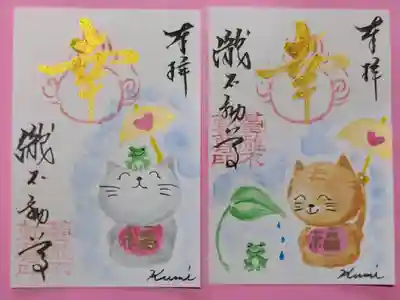 奉拝
幸
不動尊
福
Kumi
奉拝
幸
不動尊
福
Kumi